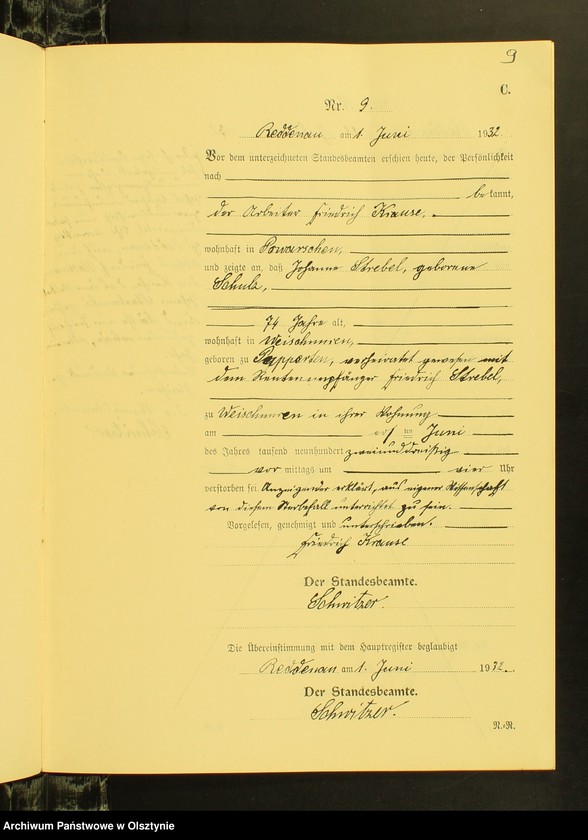 9
C.
Nr. 9.
Reddenau am 1. Juni 1932
Vor dem unterzeichneten Standesbeamten erschien heute, der Persönlichkeit
nach
bekannt,
der Arbeiter Friedrich Krause,
wohnhaft in Powarschen,
und zeigte an, daß Johanne Strebel, geborene
Schulz,
74 Jahre alt,
wohnhaft in Weischnuren,
geboren zu Papperten, verheiratet gewesen mit
dem Rentenempfänger Friedrich Strebel,
zu Weischnuren in ihrer Wohnung
am ersten Juni
des Jahres tausend neunhundert zweiunddreißig
vor mittags um vier Uhr
verstorben sei. Anzeigender erklärt, aus eigener Wissenschaft
von diesem Sterbefall unterrichtet zu sein.
Vorgelesen, genehmigt und unterschrieben.
Friedrich Krause
Der Standesbeamte.
Schwitzer.
Die Übereinstimmung mit dem Hauptregister beglaubigt
Reddenau am 1. Juni 1932.
Der Standesbeamte.
Schwitzer.
N.-R.
Archiwum Państwowe w Olsztynie